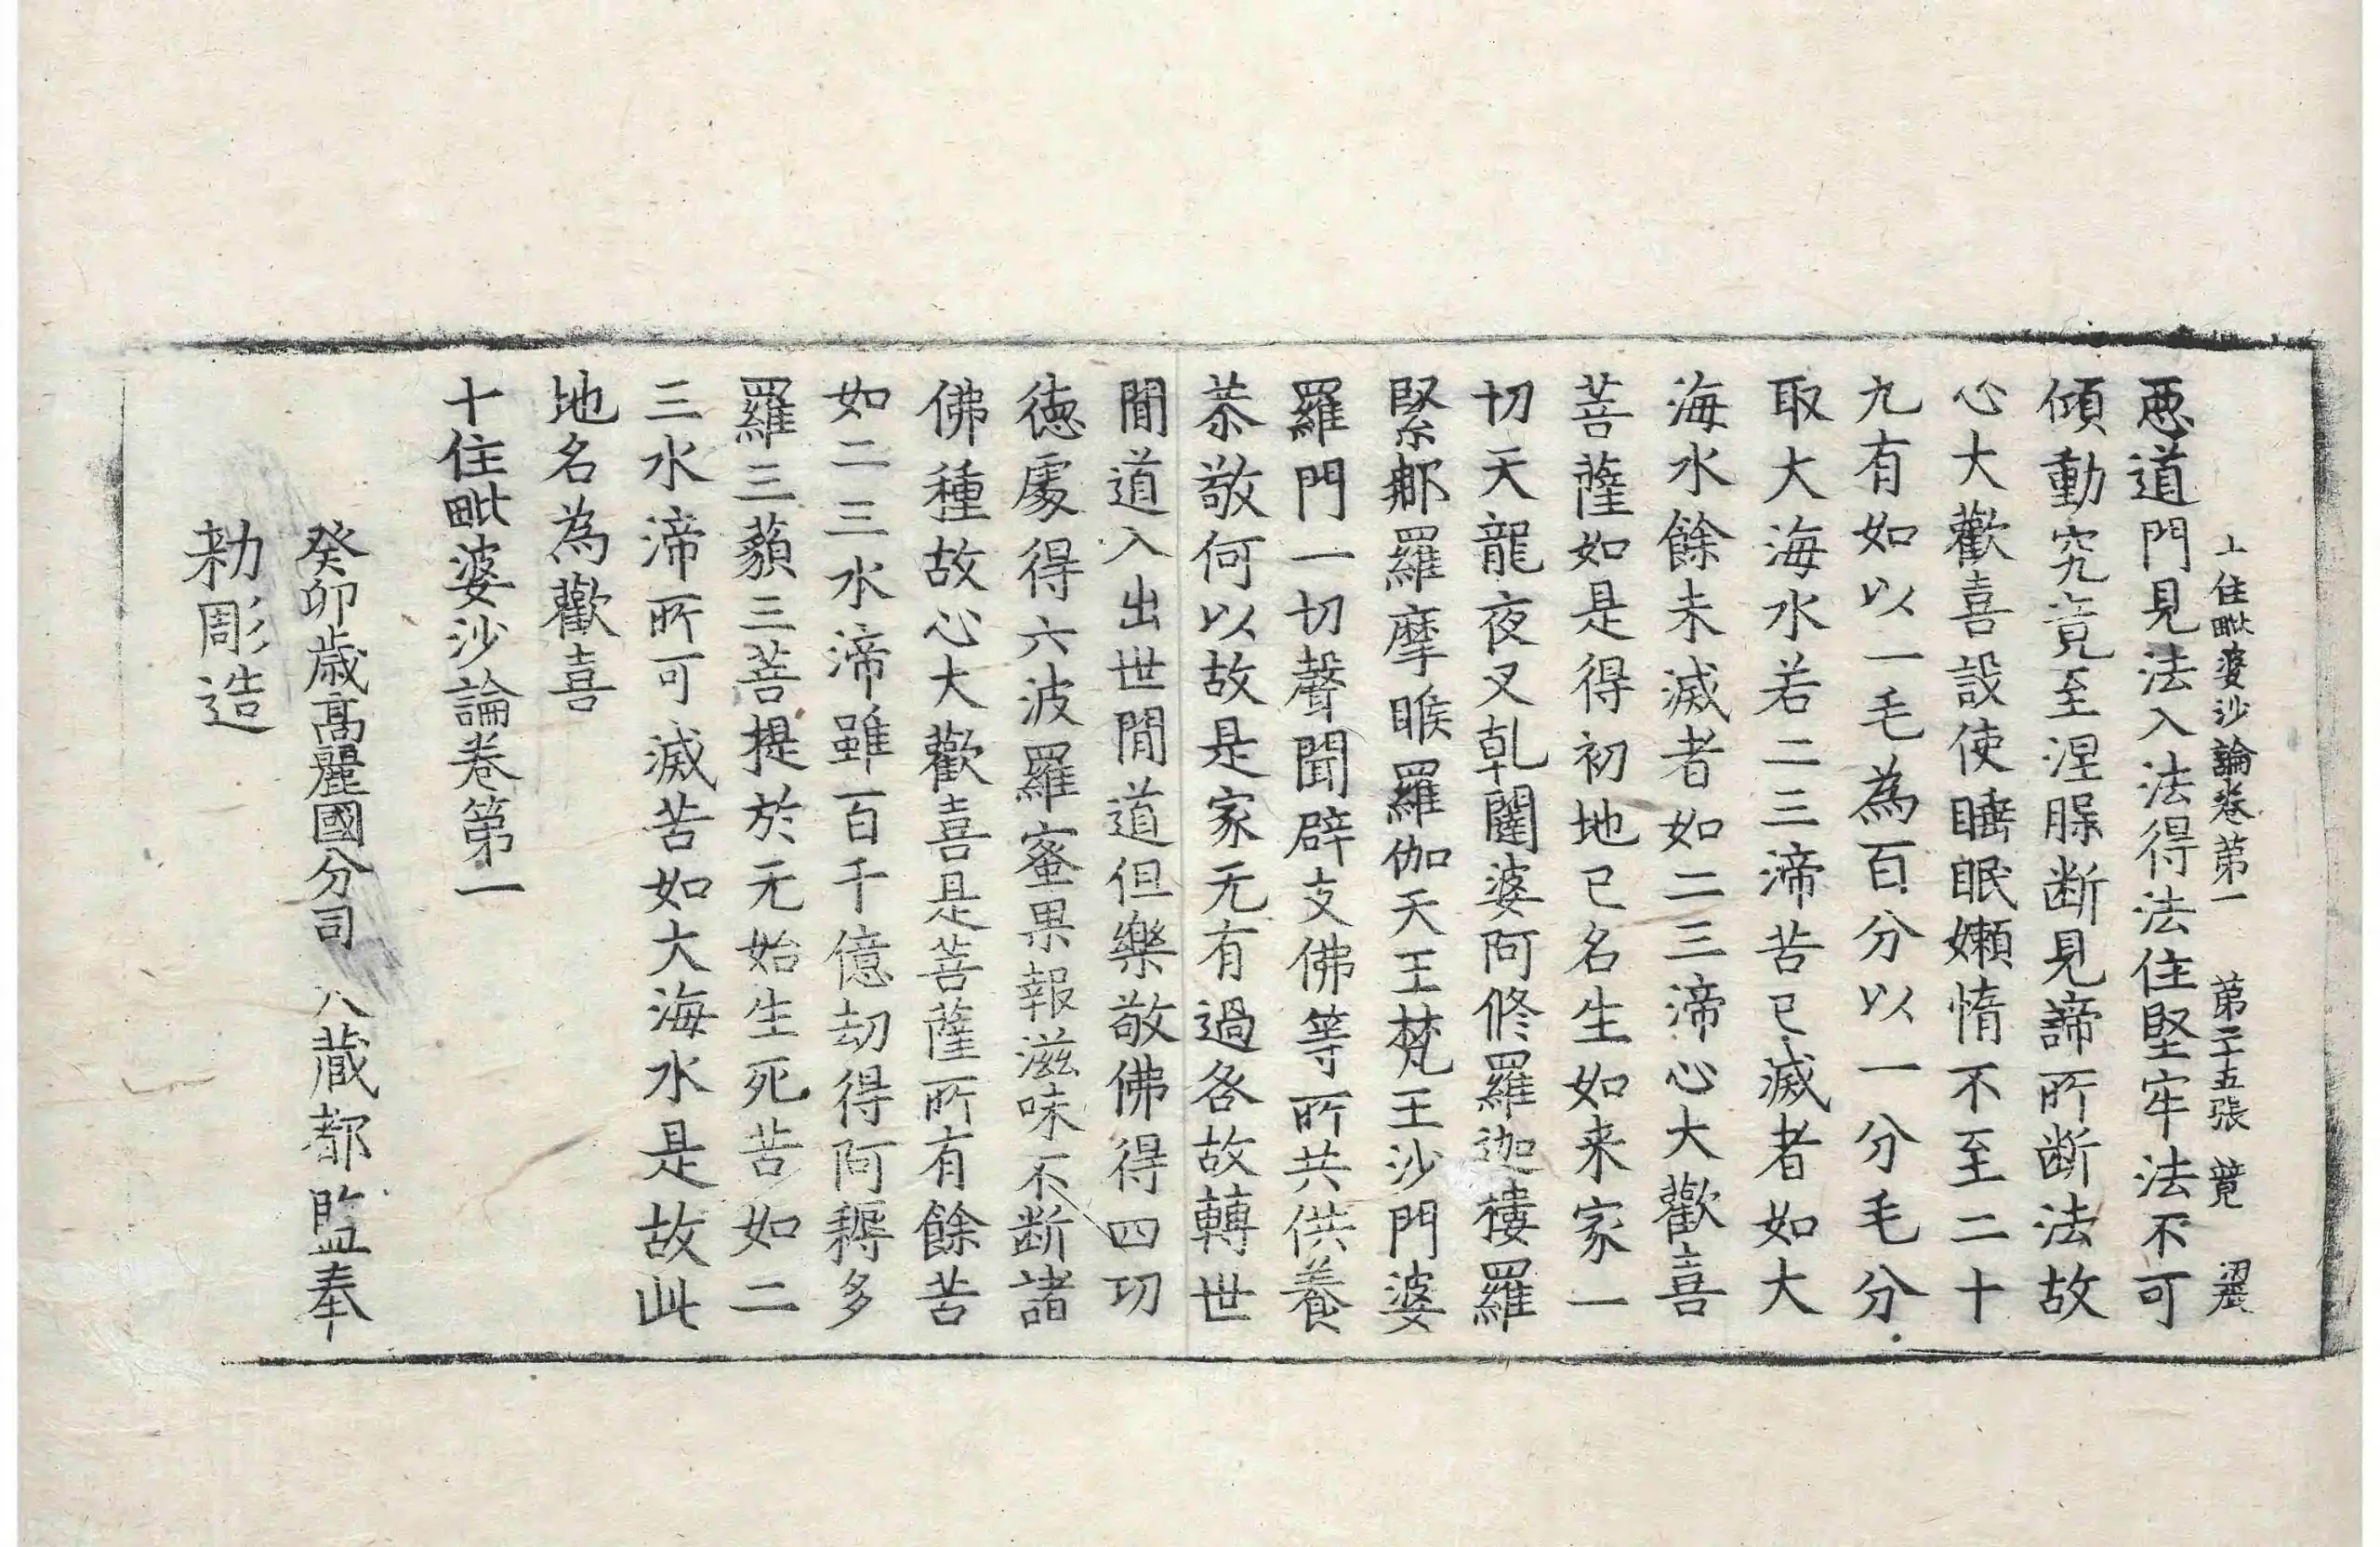 十住毗婆沙論卷第一 第二十五張 競
惡道門見法入法得法住堅牢法不可
傾動究竟至涅槃断見諦所断法故
心大歡喜設使睡眠嬾惰不至二十
九有如以一毛為百分以一分毛分
取大海水若二三渧苦已滅者如大
海水餘未滅者如二三渧心大歡喜
菩薩如是得初地已名生如来家一
切天龍夜叉乹闥婆阿修羅迦樓羅
緊那羅摩睺羅伽天王梵王沙門婆
羅門一切聲聞辟支佛等所共供養
恭敬何以故是家无有過咎故轉世
間道入出世間道但樂敬佛得四功
德處得六波羅蜜果報滋味不断諸
佛種故心大歡喜是菩薩所有餘苦
如二三水渧雖百千億劫得阿耨多
羅三藐三菩提於无始生死苦如二
三水渧所可滅苦如大海水是故此
地名為歡喜
十住毗婆沙論卷第一
癸卯歳髙麗國分司大藏都監奉
勑彫造